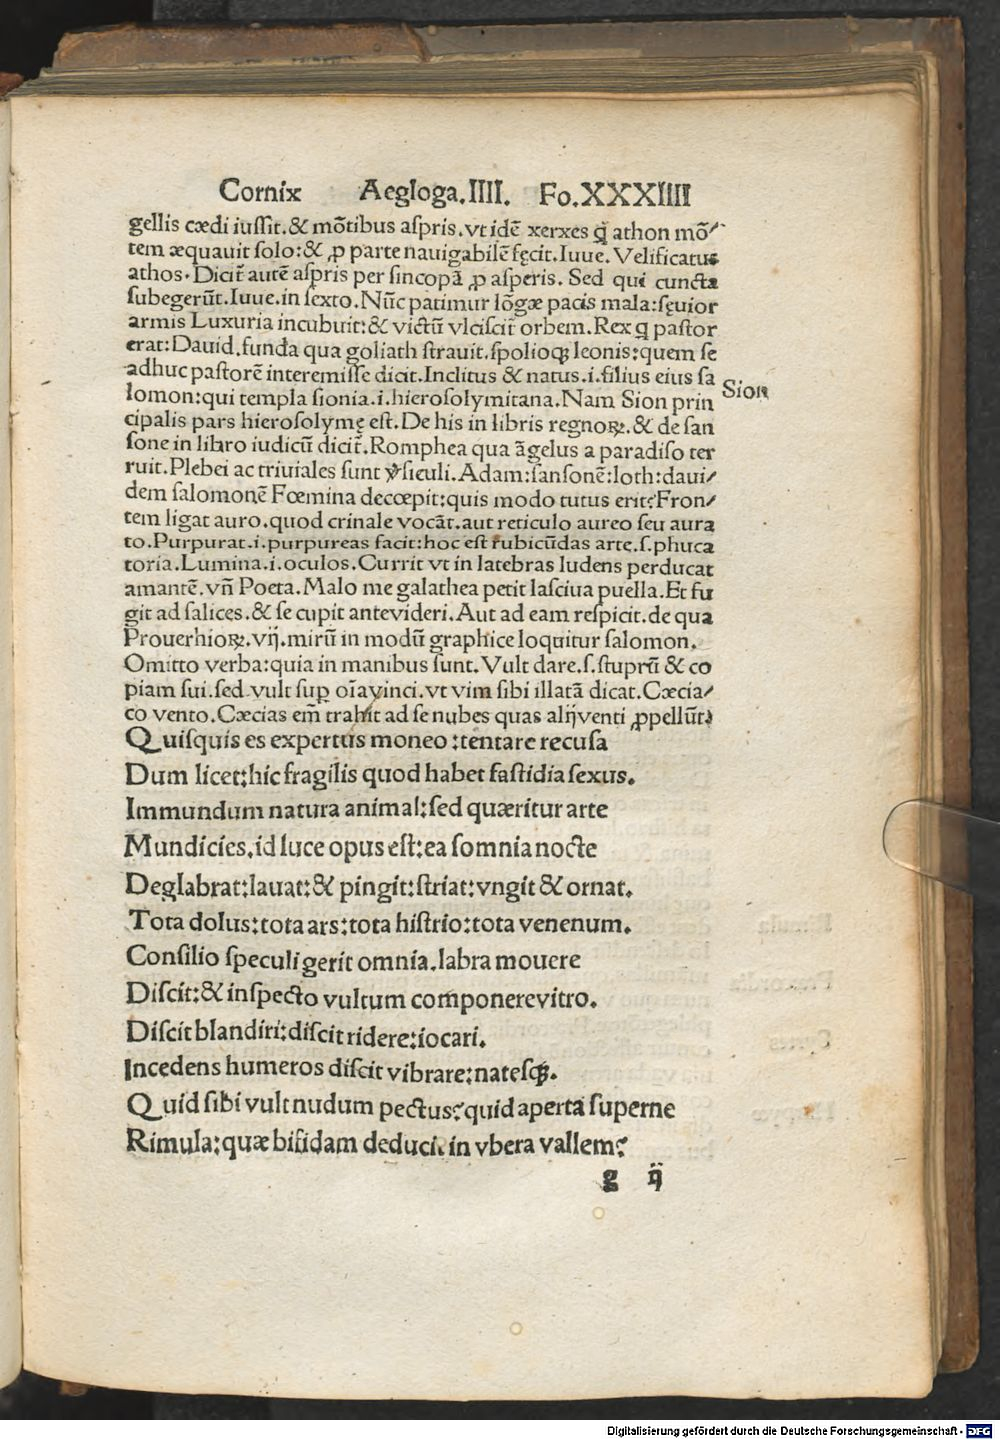 Cornix Aegloga.IIII. Fo.XXXIIII
gellis cædi iuſſit.& mõtibus aſpris.vt idẽ xerxes q̃ athon mõ⸗
tem æquauit ſolo:& ꝓ parte nauigabilẽ fęcit.Iuue. Velificatus
athos.Dicit̃ autẽ aſpris per ſincopã ꝓ aſperis. Sed qui cuncta
ſubegerũt.Iuue.in ſexto.Nũc patimur lõgæ pacis mala:ſęuior
armis Luxuria incubuit:& victũ vlciſcit̃ orbem.Rex q̃ paſtor
erat:Dauid.funda qua goliath ſtrauit.ſpolioꝗ; leonis:quem ſe
adhuc paſtorẽ interemiſſe dicit.Inclitus & natus.i.filius eius ſa
lomon:qui templa ſionia.i.hieroſolymitana.Nam Sion prin
Sion
cipalis pars hieroſolymę eſt.De his in libris regnoꝝ.& de ſan
ſone in libro iudicũ dicit̃.Romphea qua ãgelus a paradiſo ter
ruit.Plebei ac triuiales ſunt ꝟſiculi.Adam:ſanſonẽ:loth:daui⸗
dem ſalomonẽ Fœmina decœpit:quis modo tutus erit?Fron⸗
tem ligat auro.quod crinale vocãt.aut reticulo aureo ſeu aura
to.Purpurat.i.purpureas facit:hoc eſt rubicũdas arte.ſ.phuca
toria.Lumina.i.oculos.Currit vt in latebras ludens perducat
amantẽ.vñ Poeta.Malo me galathea petit laſciua puella.Et fu
git ad ſalices.& ſe cupit antevideri.Aut ad eam reſpicit.de qua
Prouerbioꝝ.vij.mirũ in modũ graphice loquitur ſalomon.
Omitto verba:quia in manibus ſunt.Vult dare.ſ.ſtuprũ & co
piam ſui.ſed vult ſuꝑ oĩa vinci.vt vim ſibi illatã dicat.Cæcia⸗
co vento.Cæcias em̃ trahit ad ſe nubes quas alij venti ꝓpellũt.
Quiſquis es expertus moneo:tentare recuſa
Dum licet:hic fragilis quod habet faſtidia ſexus.
Immundum natura animal:ſed quæritur arte
Mundicies.id luce opus eſt:ea ſomnia nocte
Deglabrat:lauat:& pingit:ſtriat:vngit & ornat.
Tota dolus:tota ars:tota hiſtrio:tota venenum.
Conſilio ſpeculi gerit omnia.labra mouere
Diſcit:& inſpecto vultum componere vitro.
Diſcit blandiri:diſcit ridere:iocari.
Incedens humeros diſcit vibrare:nateſꝗ;.
Quid ſibi vult nudum pectus?quid aperta ſuperne
Rimula:quæ bifidam deducit in vbera vallem?
g ij
Digitalisierung gefördert durch die Deutsche Forschungsgemeinschaft - DFG